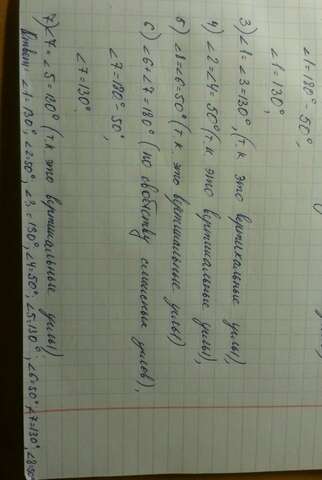 ∠1=180°-50°,
∠1=130°,
3) ∠1=∠3=130°, (т.к. это вертикальные углы),
4) ∠2=∠4=50° (т.к. это вертикальные углы),
5) ∠8=∠6=50° (т.к. это вертикальные углы)
6) ∠6+∠7=180° (по свойству смежных углов),
∠7=180°-50°,
∠7=130°
7) ∠7=∠5=130° (т.к это вертикальные углы)
Ответ: ∠1=130°, ∠2=50°, ∠3=130°, ∠4=50°, ∠5=130°, ∠6=50°, ∠7=130°, ∠8=50°